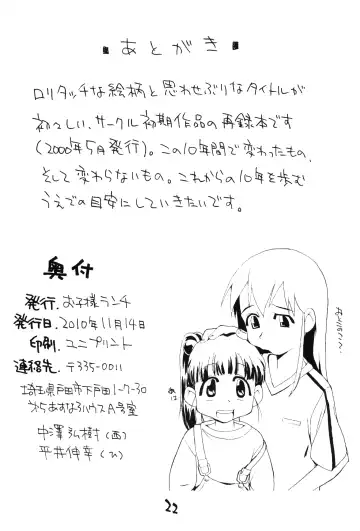 あとがき
ロリタッチな絵柄と思わせぶりなタイトルが
初々しい、サークル初期作品の再録本です
(2000年5月発行)。この10年間で変わったもの、
そして変わらないもの。これからの10年を歩む
うえでの目安にしていきたいです。
奥付
発行. お子様ランチ
発行日. 2010年11月14日
印刷. ユニプリント
連絡先. 〒335-0011
埼玉県戸田市下戸田1-7-30
中澤弘樹(西)
平井伸幸(ひ)
22